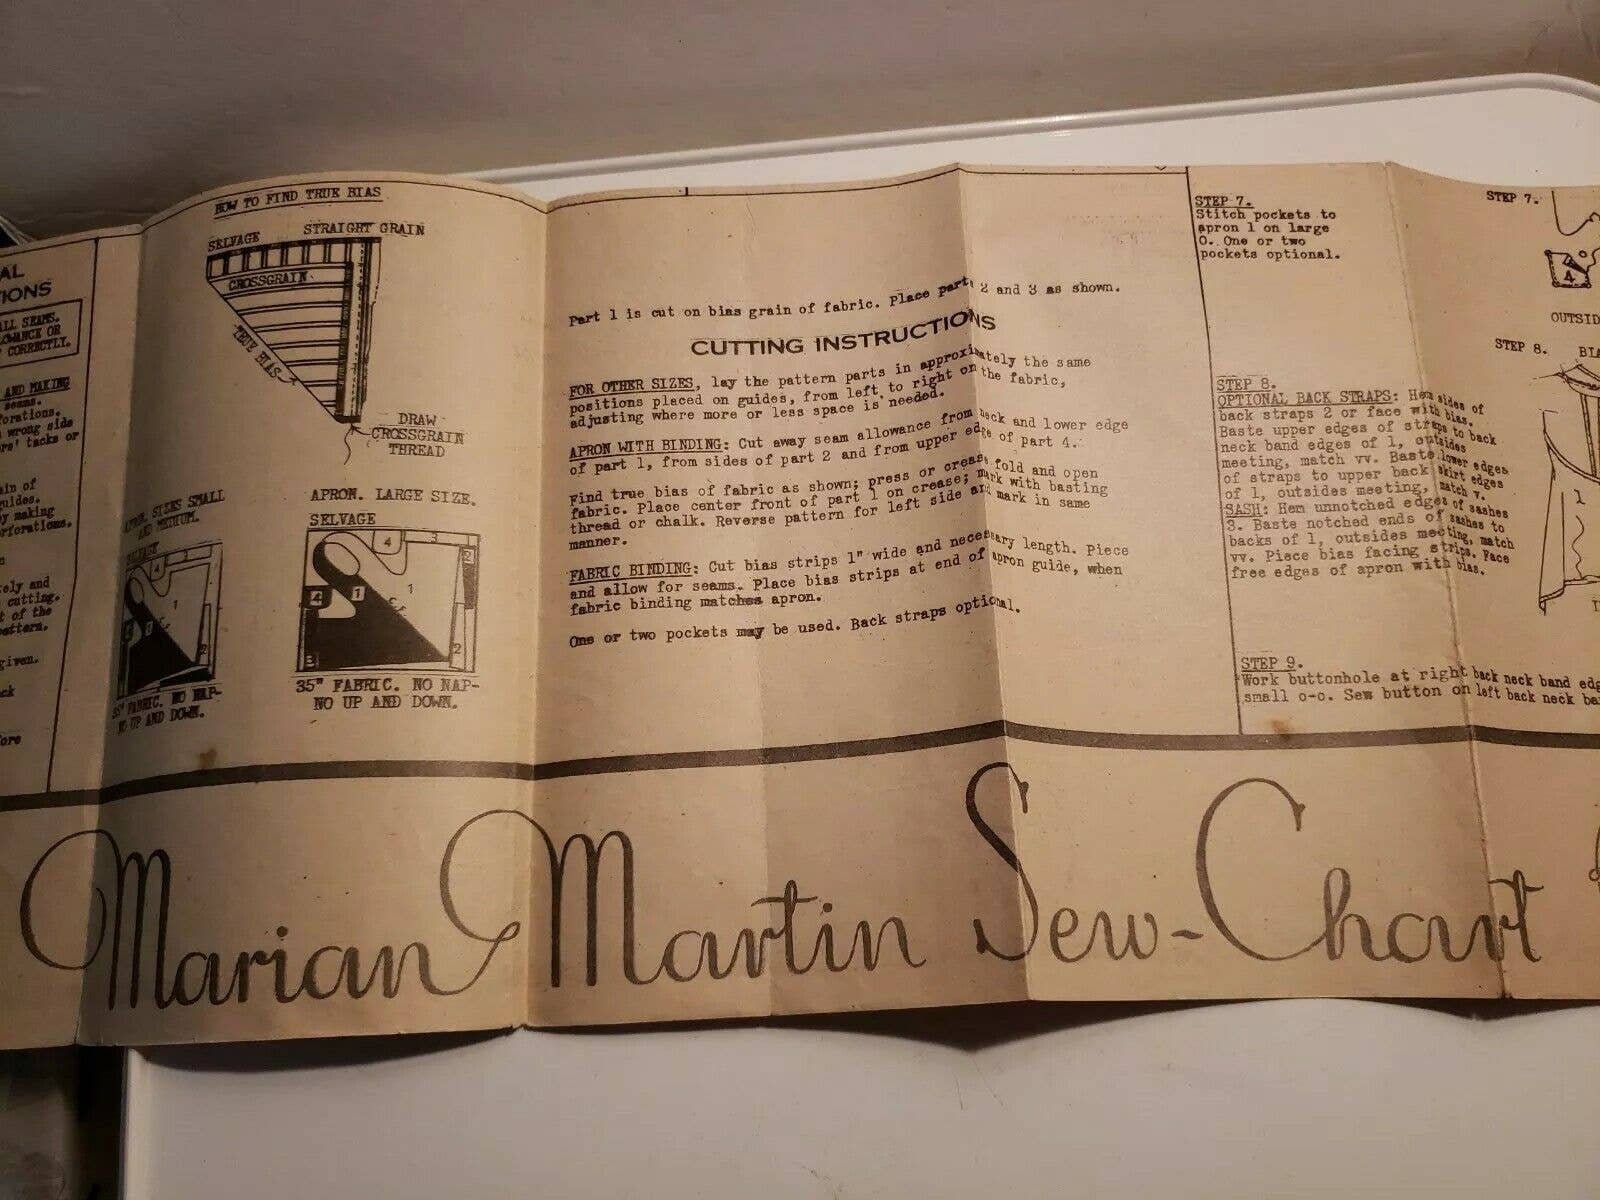 AL
IONS
ALL SEAMS.
LOWANCE OR
CORRECTLY.
AND MAKING
seams.
forations.
wrong side
ors' tacks or
in of
guides.
by making
erforations.
ely and
cutting.
t of the
pattern.
given.
ck
fore
HOW TO FIND TRUE BIAS
SELVAGE
STRAIGHT GRAIN
CROSSGRAIN
TRUE BIAS
DRAW
CROSSGRAIN
THREAD
APRON. SIZES SMALL
AND MEDIUM.
SELVAGE
4
3
1
2
35" FABRIC. NO NAP-
NO UP AND DOWN.
APRON. LARGE SIZE.
SELVAGE
4
3
2
1
4
1
3
2
35" FABRIC. NO NAP-
NO UP AND DOWN.
Part 1 is cut on bias grain of fabric. Place parts 2 and 3 as shown.
CUTTING INSTRUCTIONS
FOR OTHER SIZES, lay the pattern parts in approximately the same
positions placed on guides, from left to right on the fabric,
adjusting where more or less space is needed.
APRON WITH BINDING: Cut away seam allowance from neck and lower edge
of part 1, from sides of part 2 and from upper edge of part 4.
Find true bias of fabric as shown; press or crease fold and open
fabric. Place center front of part 1 on crease; mark with basting
thread or chalk. Reverse pattern for left side and mark in same
manner.
FABRIC BINDING: Cut bias strips 1" wide and necessary length. Piece
and allow for seams. Place bias strips at end of apron guide, when
fabric binding matches apron.
One or two pockets may be used. Back straps optional.
STEP 7.
Stitch pockets to
apron 1 on large
O. One or two
pockets optional.
STEP 8.
OPTIONAL BACK STRAPS: Hem sides of
back straps 2 or face with bias.
Baste upper edges of straps to back
neck band edges of 1, outsides
meeting, match vv. Baste lower edges
of straps to upper back skirt edges
of 1, outsides meeting, match v.
SASH: Hem unnotched edges of sashes
3. Baste notched ends of sashes to
backs of 1, outsides meeting, match
vv. Piece bias facing strips. Face
free edges of apron with bias.
STEP 9.
Work buttonhole at right back neck band edg
small o-o. Sew button on left back neck ba
STEP 7.
4
OUTSID
STEP 8.
BIA
1
Marian Martin Sew-Chart